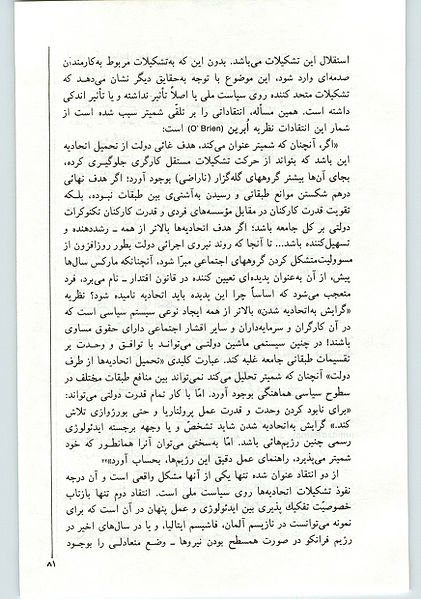 استقلال این تشکیلات می‌باشد. بدون این که به‌تشکیلات مربوط به‌کارمندان
صدمه‌ای وارد شود، این موضوع با توجه به‌حقایق دیگر نشان می‌دهد که
تشکیلات متحد کننده روی سیاست ملی یا اصلاً تأثیر نداشته و یا تأثیر اندکی
داشته است. همین مسأله، انتقاداتی را بر تلقّی شمیتر سبب شده است از
شمار این انتقادات نظریه اُبرین (O'Brien) است:
«اگر، آنچنان که شمیتر عنوان می‌کند، هدف غائی دولت از تحمیل اتحادیه
این باشد که بتواند از حرکت تشکیلات مستقل کارگری جلوگیری کرده،
بجای آن‌ها بیشتر گروههای گله‌گزار (ناراضی) بوجود آورد؛ اگر هدف نهائی
درهم شکستن موانع طبقاتی و رسیدن به‌آشتی‌ی بین طبقات نبوده، بلـکه
تقویت قدرت کارکنان در مقابل مؤسسه‌های فردی و قدرت کارکنان تکنوکرات
دولتی بر کل جامعه باشد؛ اگر هدف اتحادیه‌ها بالاتر از همه ـ رشددهنده و
تسهیل‌کننده باشد... تا آنجا که روند نیروی اجرائی دولت بطور روزافزون از
مسوولیت‌متشکل کردن گروههای اجتماعی مبرّا شود، آنچنانکه مارکس سال‌ها
پیش، از آن به‌عنوان پدیده‌ای تعیین کننده در قانون اقتدار ـ نام می‌برد، فرد
متعجب می‌شود که اساساً چرا این پدیده باید اتحادیه نامیده شود؟ نظریه
«گرایش به‌اتحادیه شدن» بالاتر از همه ایجاد نوعی سیستم سیاسی است که
در آن کارگران و سرمایه‌داران و سایر اقشار اجتماعی دارای حقوق مساوی
باشند؛ در چنین سیستمی ماشین دولتـی می‌توانـد با توافـق و وحـدت بر
تقسیمات طبقاتی جامعه غلبه کند. عبارت کلیدی «تحمیل اتحادیه‌ها از طرف
دولت» آنچنان که شمیتر تحلیل می‌کند نمی‌تواند بین منافع طبقات مختلف در
سطوح سیاسی هماهنگی بوجود آورد. امّا با کار تمام قدرت دولتی می‌تواند:
«برای نابود کردن وحدت و قدرت عمل پرولتاریا و حتی بورژوازی تلاش
کند.» گرایش به‌اتحادیه شدن شاید تشخصّ و یا وجهه برجسته ایدئولوژی
رسمی چنین رژیم‌هائی باشد. امّا به‌سختی می‌توان آنرا همانطـور که خود
شمیتر می‌پذیرد، راهنمای عمل دقیق این رژیم‌ها، بحساب آورد»
از دو انتقاد عنوان شده تنها یکی از آنها مشکل واقعی است و آن درجه
نفوذ تشکیلات اتحادیه‌ها روی سیاست ملی است. انتقاد دوم تنها بازتاب
خصوصیّت تفکیک پذیری بین ایدئولوژی و عمل پنهان در آن است که برای
نمونه می‌توانست در نازیسم آلمان، فاشیسم ایتالیا، و یا در سال‌های اخیر در
رژیم فرانکو در صورت همسطح بودن نیروها ـ وضـع متعادلـی را بوجـود
۸۱